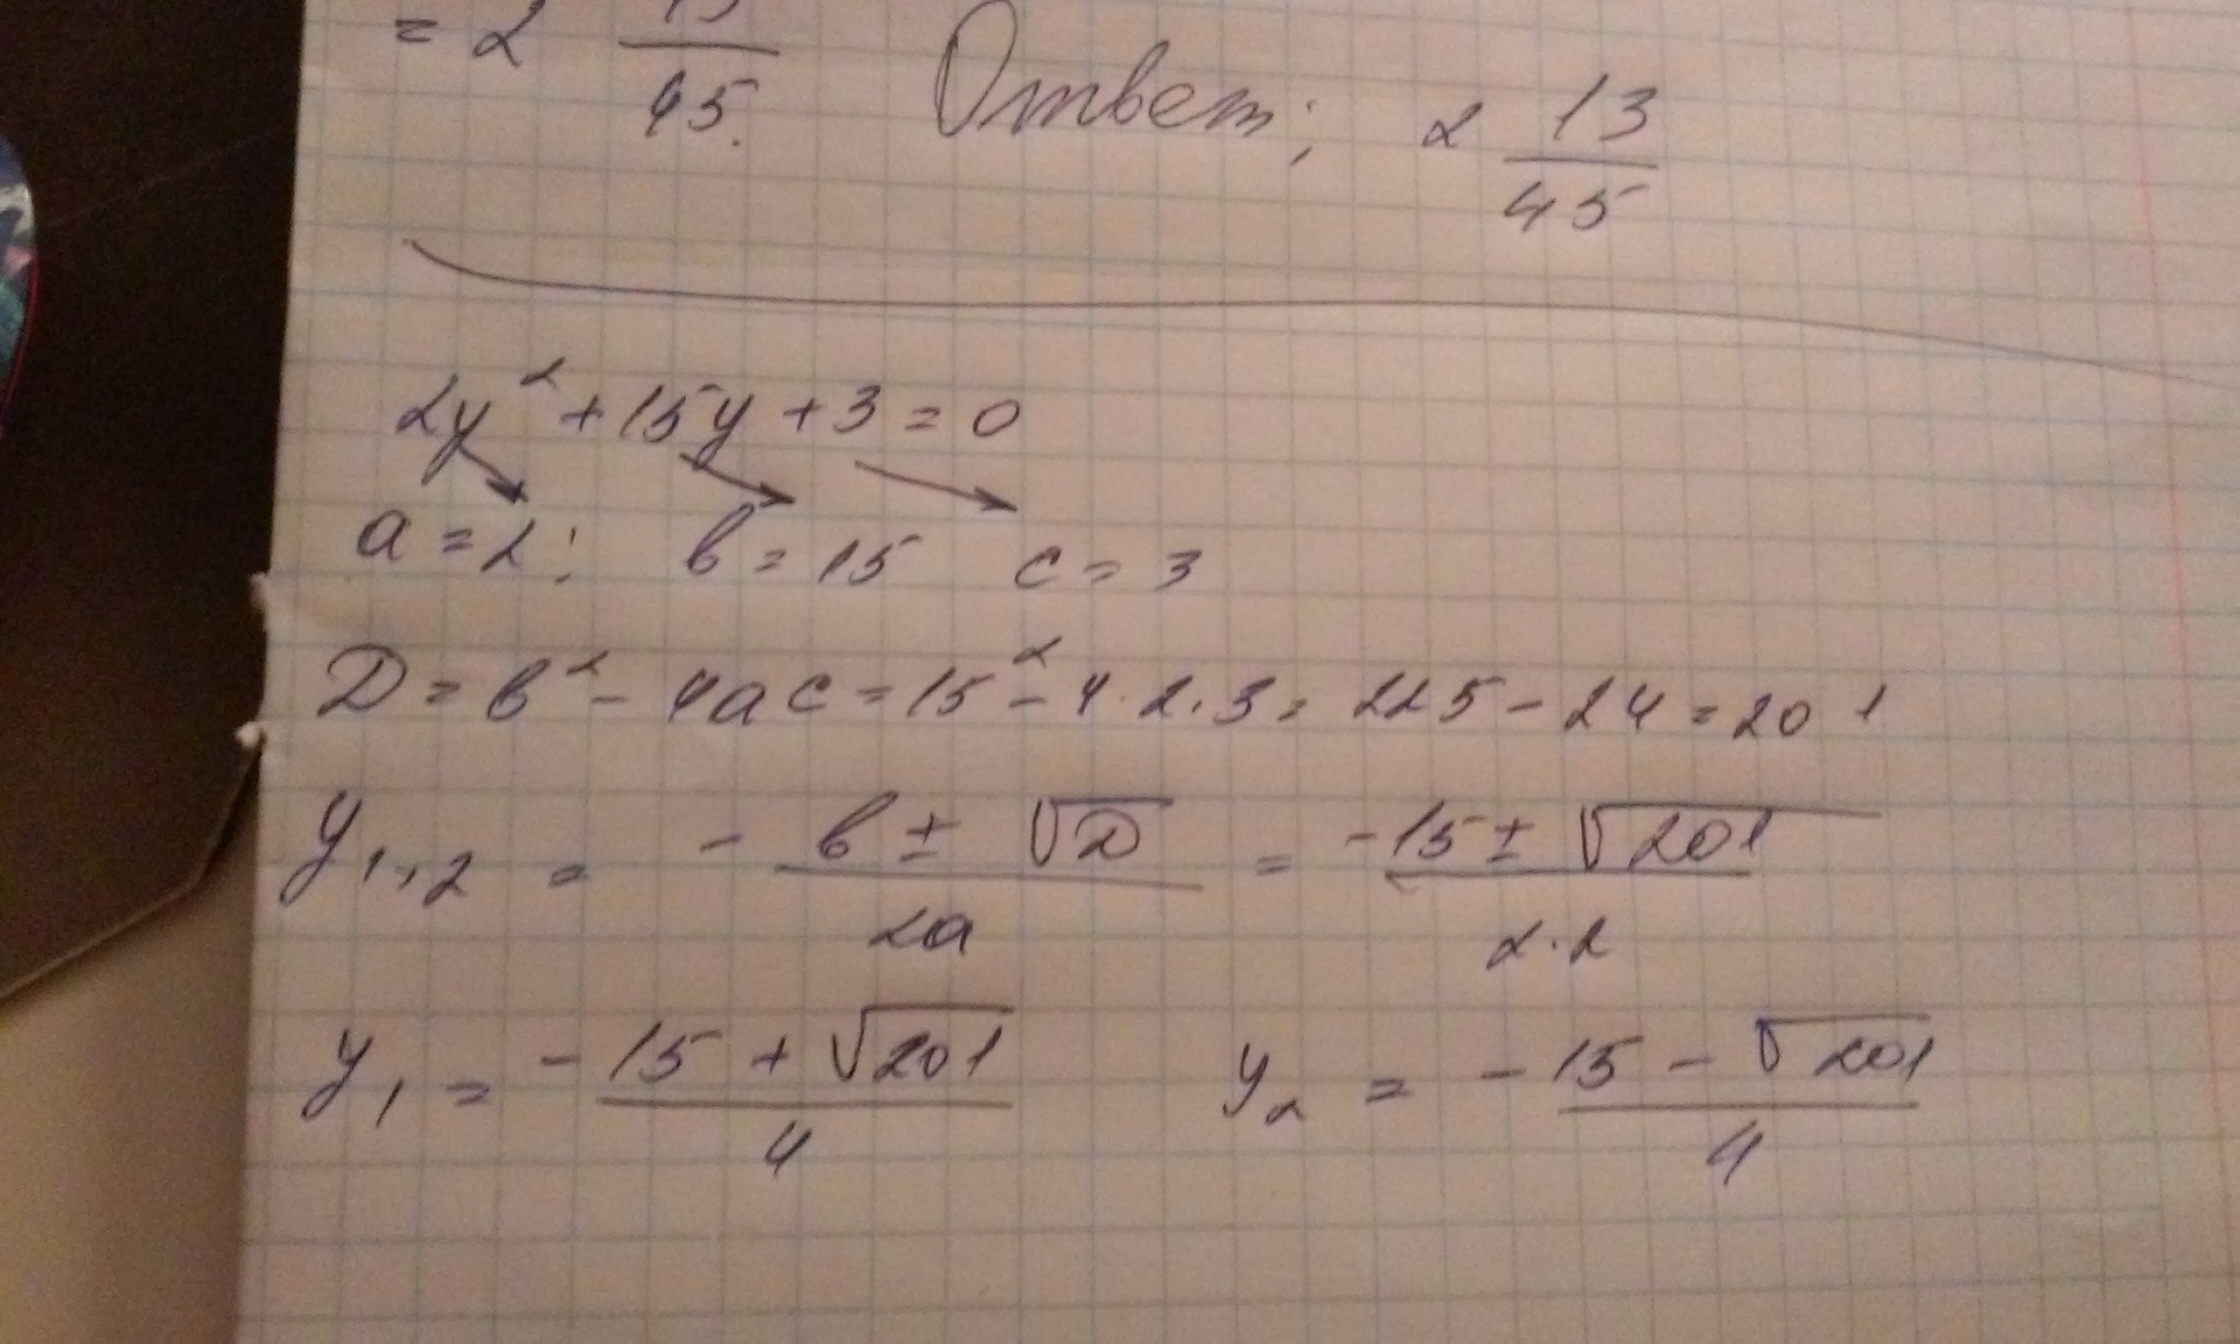 = 2 13/45. Ответ: 2 13/45
2y² + 15y + 3 = 0
a = 2; b = 15 c = 3
D = b² - 4ac = 15² - 4 · 2 · 3 = 225 - 24 = 201
y₁,₂ = -b ± √D / 2a = -15 ± √201 / 2·2
y₁ = -15 + √201 / 4 y₂ = -15 - √201 / 4